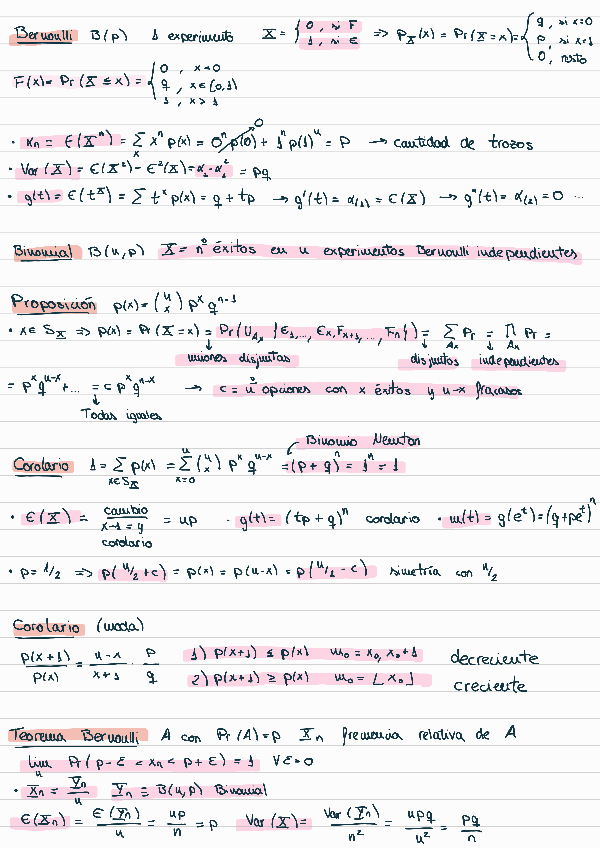 Bernoulli B(p) 1 experimento X = { 0, si F ; 1, si E ⇒ P_X(x) = Pr(X=x) = { q, si x=0 ; p, si x=1 ; 0, resto
F(x) = Pr(X ≤ x) = { 0, x<0 ; q, x∈[0,1) ; 1, x>1
· αn = E(X^n) = Σ_x x^n p(x) = 0^n p(0) + 1^n p(1)^n = P → cantidad de trozos
· Var(X) = E(X²) - E²(X) = α_1 - α_1² = pq
· g(t) = E(t^X) = Σ t^x p(x) = q + tp → g'(t) = α_(1) = E(X) → g''(t) = α_(2) = 0 ...
Binomial B(n,p) X = nº éxitos en n experimentos Bernoulli independientes
Proposición p(x) = (n x) p^x q^{n-1}
· x ∈ S_X ⇒ p(x) = Pr(X=x) = Pr(U_{Ax} {E_1,..., E_x, F_{x+1},..., F_n}) = Σ_{Ax} Pr = Π_{Ax} Pr =
uniones disjuntas disjuntos independientes
= p^x q^{n-x} + ... = c p^x q^{n-x} → c = nº opciones con x éxitos y n-x fracasos
Todas iguales
Binomio Newton
Corolario 1 = Σ_{x∈S_X} p(x) = Σ_{x=0}^n (n x) p^x q^{n-x} = (p+q)^n = 1^n = 1
· E(X) = cambio x-1=y corolario = np · g(t) = (tp+q)^n corolario · m(t) = g(e^t) = (q+pe^t)^n
· p = 1/2 ⇒ p(n/2 + c) = p(x) = p(n-x) = p(n/2 - c) simetría con n/2
Corolario (moda)
p(x+1)/p(x) = n-x/x+1 · p/q 1) p(x+1) ≤ p(x) m_0 = x_0, x_0+1 decreciente
2) p(x+1) ≥ p(x) m_0 = ⌊x_0⌋ creciente
Teorema Bernoulli A con Pr(A)=p X_n frecuencia relativa de A
lim_n Pr(p-ε < x_n < p+ε) = 1 ∀ε>0
· X_n = Y_n/n Y_n ≡ B(n,p) Binomial
E(X_n) = E(Y_n)/n = np/n = p Var(X) = Var(Y_n)/n² = npq/n² = pq/n